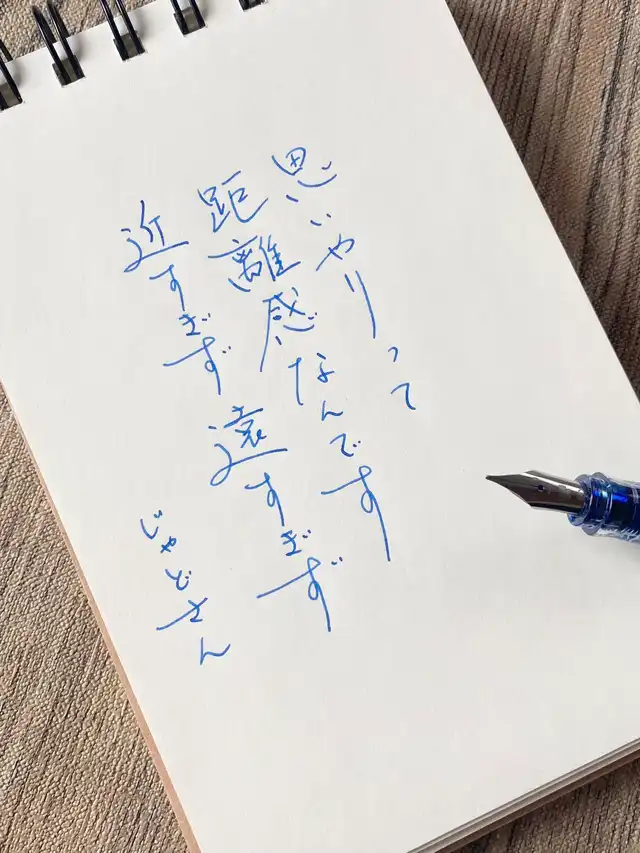 思いやりって
距離感なんです
近すぎず 遠すぎず
じゃどさん